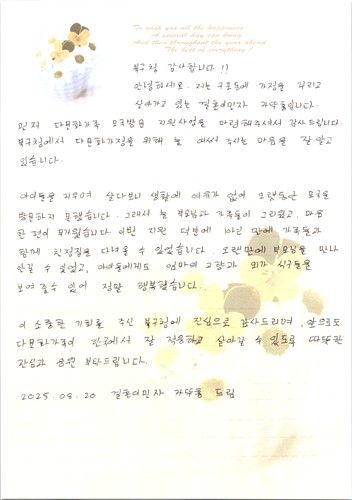 To wish you all the happiness
A special day can bring
And then throughout the year ahead
The best of everything!
북구청 감사합니다 !!
안녕하세요. 저는 구포동에 가정을 꾸리고
살아가고 있는 결혼이민자 입니다.
먼저 다문화가족 모국방문 지원사업을 마련해주셔서 감사드립니다.
북구청에서 다문화가정을 위해 늘 애써 주시는 마음을 잘 알고
있습니다.
아이들을 키우며 살다보니 생활에 여유가 없어 오랫동안 모국을
방문하지 못했습니다. 그래서 늘 부모님과 가족들이 그리웠고, 마음
한 편이 무거웠습니다. 이번 지원 덕분에 만에 가족들과
함께 친정집을 다녀올 수 있었습니다. 오랜만에 부모님을 만나
안길 수 있었고, 아이들에게도 엄마의 고향과 외가 식구들을
보여 줄 수 있어 정말 행복했습니다.
이 소중한 기회를 주신 북구청에 진심으로 감사드리며, 앞으로도
다문화가족이 한국에서 잘 적응하고 살아갈 수 있도록 따뜻한
관심과 응원 부탁드립니다.
2025. 08. 20 결혼이민자 드림